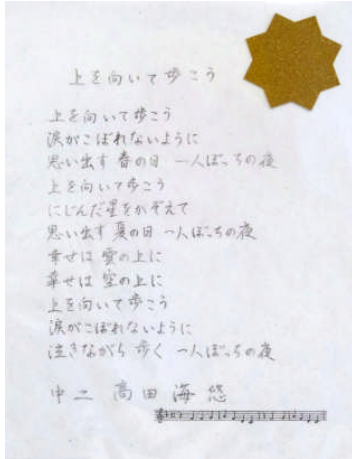 上を向いて歩こう
上を向いて歩こう
涙がこぼれないように
思い出す 春の日 一人ぼっちの夜
上を向いて歩こう
にじんだ星をかぞえて
思い出す 夏の日 一人ぼっちの夜
幸せは 雲の上に
幸せは 空の上に
上を向いて歩こう
涙がこぼれないように
泣きながら 歩く 一人ぼっちの夜
中二 高田 海悠